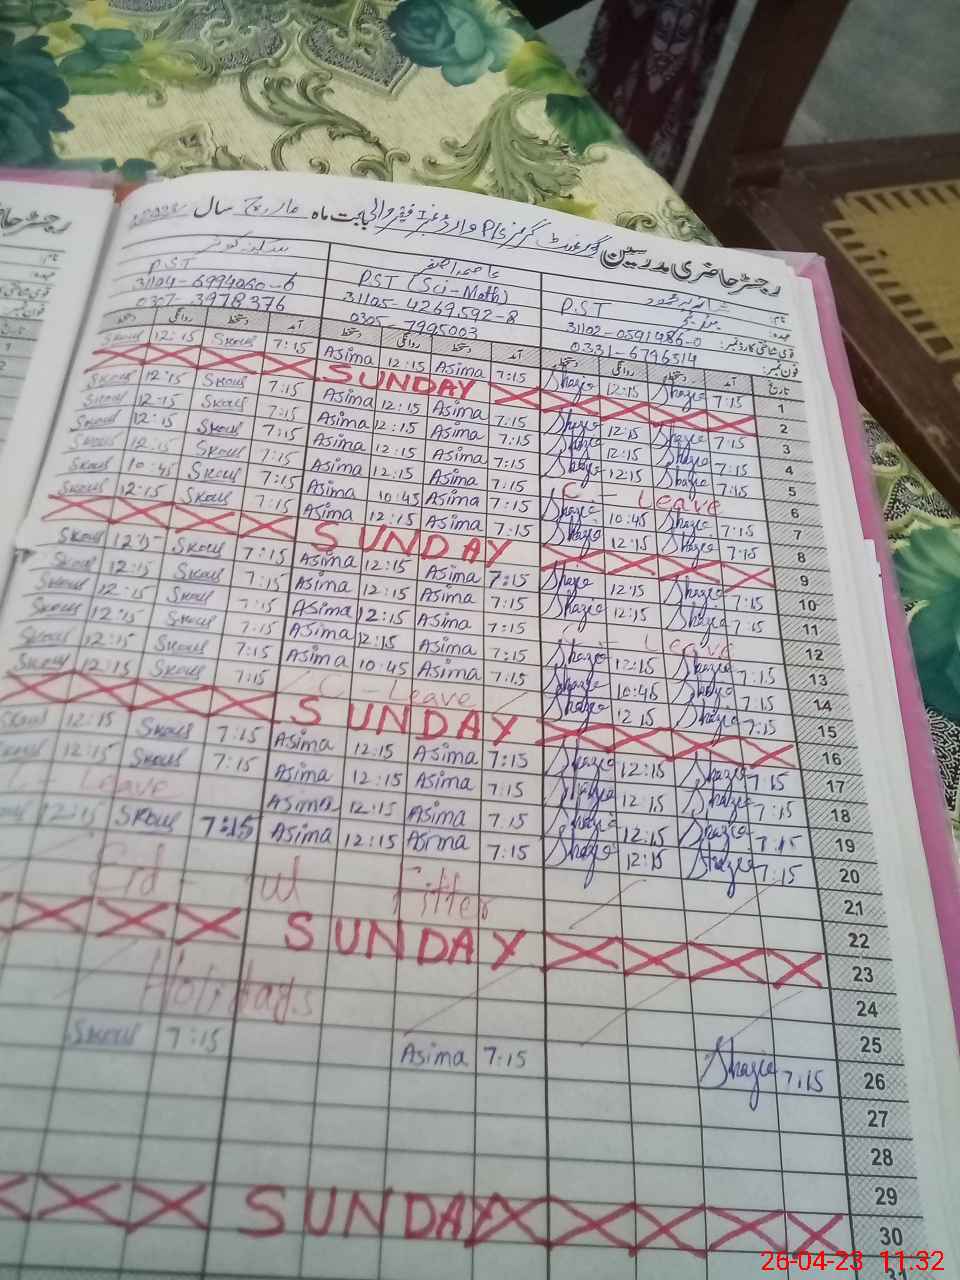 رجسٹر حاضری مدرسین گورنمنٹ گرلز P/S وارڈ نمبر I فقیر والی بابت ماہ مارچ سال
نام: عاصمہ اصغر
عہدہ: P.S.T PST (Sci-Math) PST
قومی شناختی کارڈ نمبر: 31102-0591486-0 31105-4269592-8 31104-6994060-6
فون نمبر: 0331-6796514 0305-7995003 0307-3978376
تاریخ آمد دستخط روانگی دستخط آمد دستخط روانگی دستخط آمد دستخط روانگی دستخط
Skoul 12:15 Skoul 7:15 Asima 12:15 Asima 7:15 Shazie 12:15 Shazie 7:15 1
SUNDAY 2
Skoul 12:15 Skoul 7:15 Asima 12:15 Asima 7:15 Shazie 12:15 Shazie 7:15 3
Skoul 12:15 Skoul 7:15 Asima 12:15 Asima 7:15 Shazie 12:15 Shazie 7:15 4
Skoul 12:15 Skoul 7:15 Asima 12:15 Asima 7:15 Shazie 12:15 Shazie 7:15 5
Skoul 12:15 Skoul 7:15 Asima 12:15 Asima 7:15 C - Leave 6
Skoul 10:45 Skoul 7:15 Asima 10:45 Asima 7:15 Shazie 10:45 Shazie 7:15 7
Skoul 12:15 Skoul 7:15 Asima 12:15 Asima 7:15 Shazie 12:15 Shazie 7:15 8
SUNDAY 9
Skoul 12:15 Skoul 7:15 Asima 12:15 Asima 7:15 Shazie 12:15 Shazie 7:15 10
Skoul 12:15 Skoul 7:15 Asima 12:15 Asima 7:15 Shazie 12:15 Shazie 7:15 11
Skoul 12:15 Skoul 7:15 Asima 12:15 Asima 7:15 Leave 12
Skoul 12:15 Skoul 7:15 Asima 12:15 Asima 7:15 Shazie 12:15 Shazie 7:15 13
Skoul 12:15 Skoul 7:15 Asima 10:45 Asima 7:15 Shazie 10:45 Shazie 7:15 14
Skoul 12:15 Skoul 7:15 C - Leave Shazie 12:15 Shazie 7:15 15
SUNDAY 16
Skoul 12:15 Skoul 7:15 Asima 12:15 Asima 7:15 Shazie 12:15 Shazie 7:15 17
Skoul 12:15 Skoul 7:15 Asima 12:15 Asima 7:15 Shazie 12:15 Shazie 7:15 18
Leave Asima 12:15 Asima 7:15 Shazie 12:15 Shazie 7:15 19
Skoul 12:15 Skoul 7:15 Asima 12:15 Asima 7:15 Shazie 12:15 Shazie 7:15 20
Eid - ul Fitter 21
22
SUNDAY 23
24
Holidays 25
Skoul 7:15 Asima 7:15 Shazie 7:15 26
27
28
29
SUNDAY 30
26-04-23 11:32